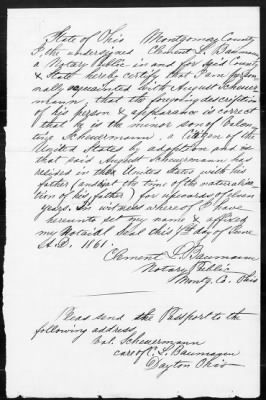 State of Ohio Montgomery County
I, the undersigned Clement L. Baumann
a Notary Public in and for said County
& State hereby certify that I am person-
ally acquainted with August Scheuer-
mann, that the foregoing description
of his person & appearance is correct
that he is the minor son of Valen-
tine Scheuermann, a Citizen of the
United States by adoption and is
that said August Scheuermann has
resided in the United States with his
father (and at the time of the naturaliza-
tion of his father) for upwards of seven
years. In witness whereof I have
hereunto set my name & affixed
my Notarial Seal this 7th day of June
A.D. 1861.
Clement L. Baumann
Notary Public
Montg. Co. Ohio
Please send the Passport to the
following address,
Val. Scheuermann
care of C. L. Baumann
Dayton Ohio